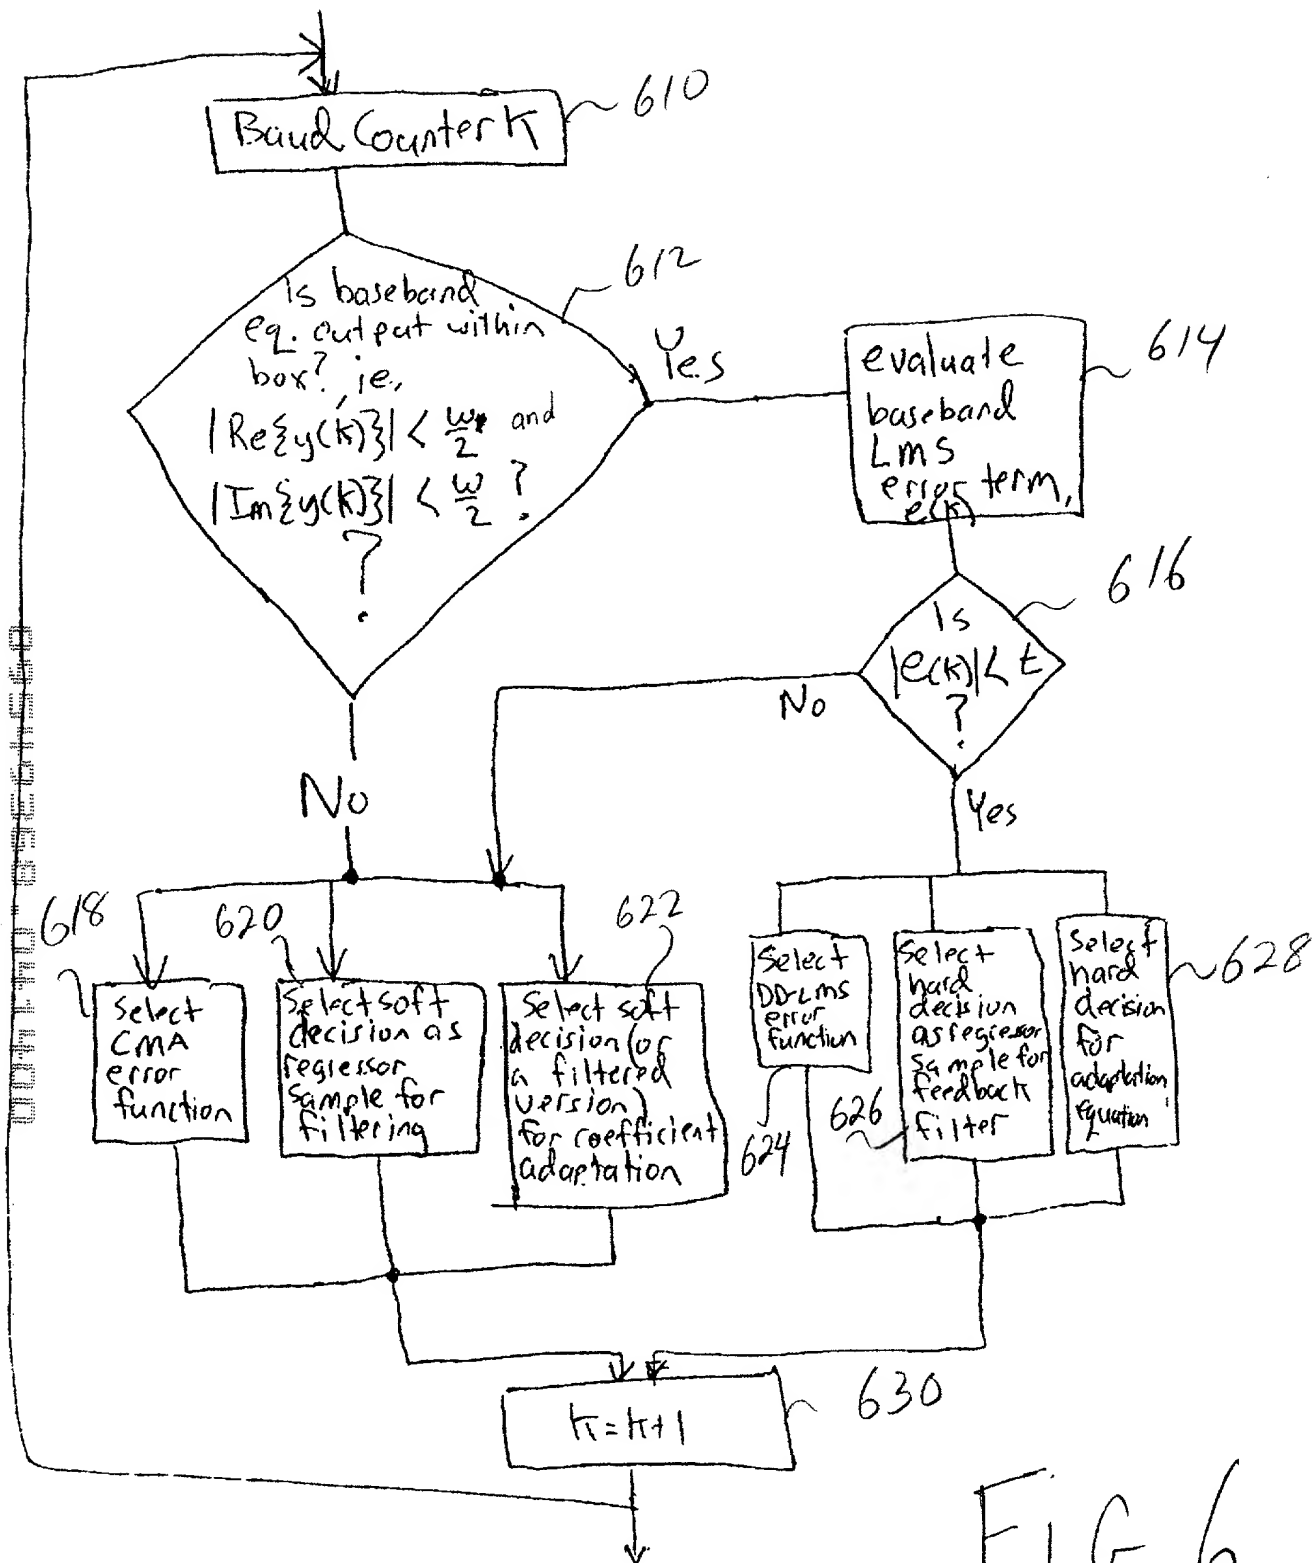 610
Baud Counter K
612
Is baseband
eq. output within
box? i.e.,
|Re{y(k)}| < w/2 and
|Im{y(k)}| < w/2 ?
?
Yes
614
evaluate
baseband
LMS
error term,
e(k)
616
Is
|e(k)| < t
?
No
Yes
No
618
Select
CMA
error
function
620
Select soft
decision as
regressor
sample for
filtering
622
Select soft
decision (or
a filtered
version)
for coefficient
adaptation
624
Select
DD-LMS
error
function
626
Select
hard
decision
as regressor
sample for
feedback
filter
628
Select
hard
decision
for
adaptation
equation
630
K=K+1
FIG 6